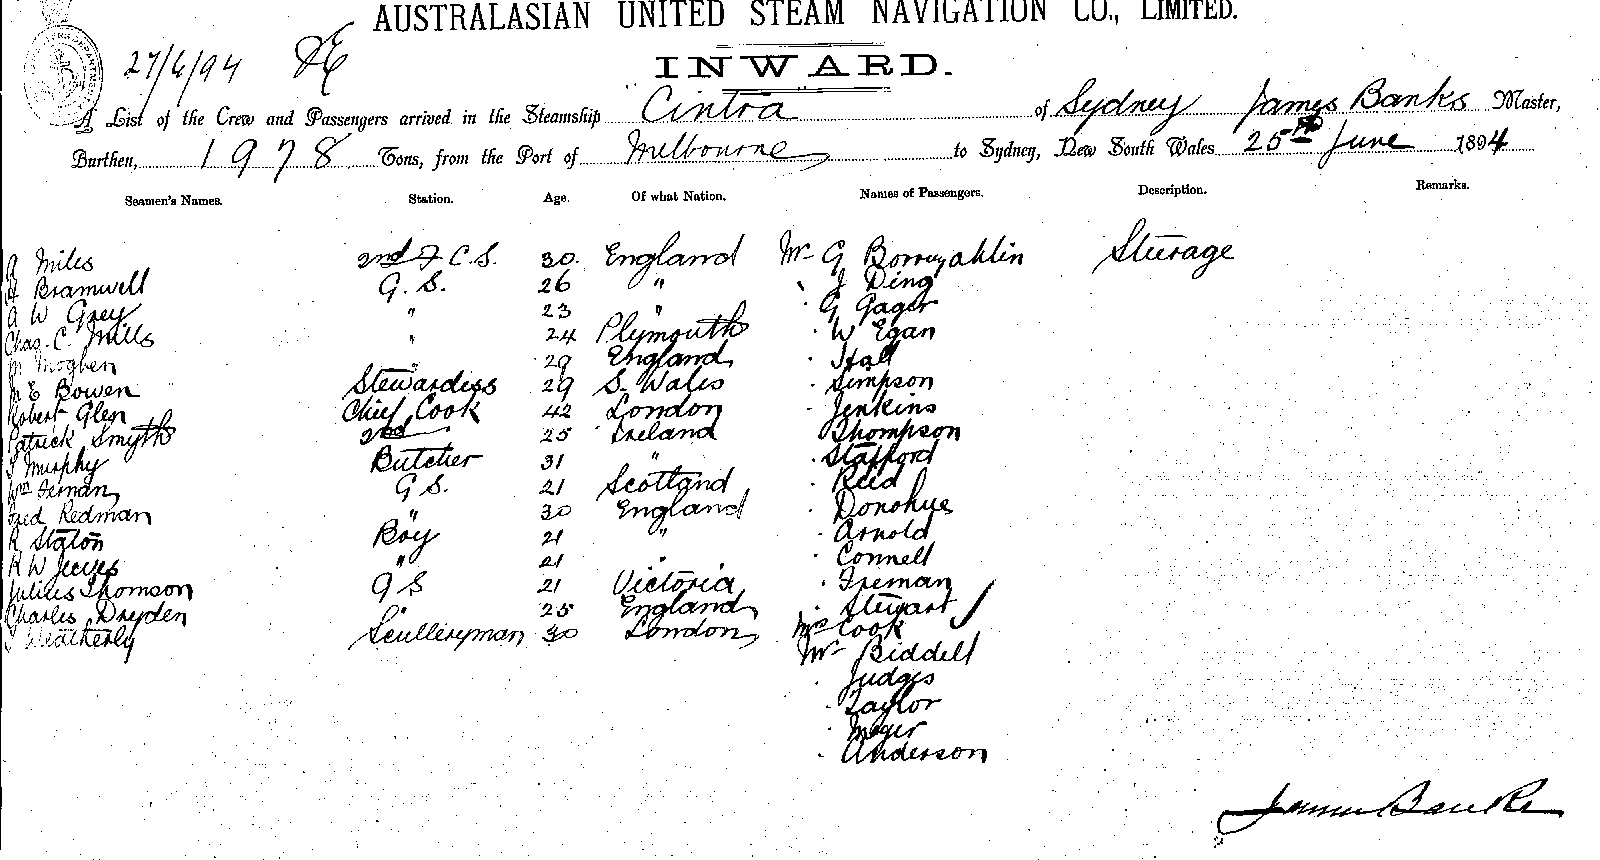 AUSTRALASIAN UNITED STEAM NAVIGATION CO., LIMITED.
27/6/94
INWARD.
A List of the Crew and Passengers arrived in the Steamship Cintra of Sydney James Banks Master,
Burthen, 1978 Tons, from the Port of Melbourne to Sydney, New South Wales 25th June 1894
Seamen's Names. Station. Age. Of what Nation. Names of Passengers. Description. Remarks.
A Miles 2nd F.C.S. 30. England Mr G Sturage
H Bramwell G. S. 26 " J Ding
A W Grey " 23 " G Gager
Chas. C. Mills " 24 Plymouth W Egan
" 29 England Hall
M E Bowen Stewardess 29 S. Wales Simpson
Robert Glen Chief Cook 42 London Jenkins
Patrick Smyth 2nd 25 Ireland Thompson
J Murphy Butcher 31 " Stafford
Wm G S. 21 Scotland Reed
Fred Redman " 30 England Donohue
R Staton Boy 21 " Arnold
R W Jeeves " 21 " Connell
Julius Thomson G S 21 Victoria Freman
Charles Dryden " 25 England Stewart
J Weatherly Sculleryman 30 London Mrs Cook
Mr Biddell
Judges
Taylor
Meyer
Anderson
James Banks